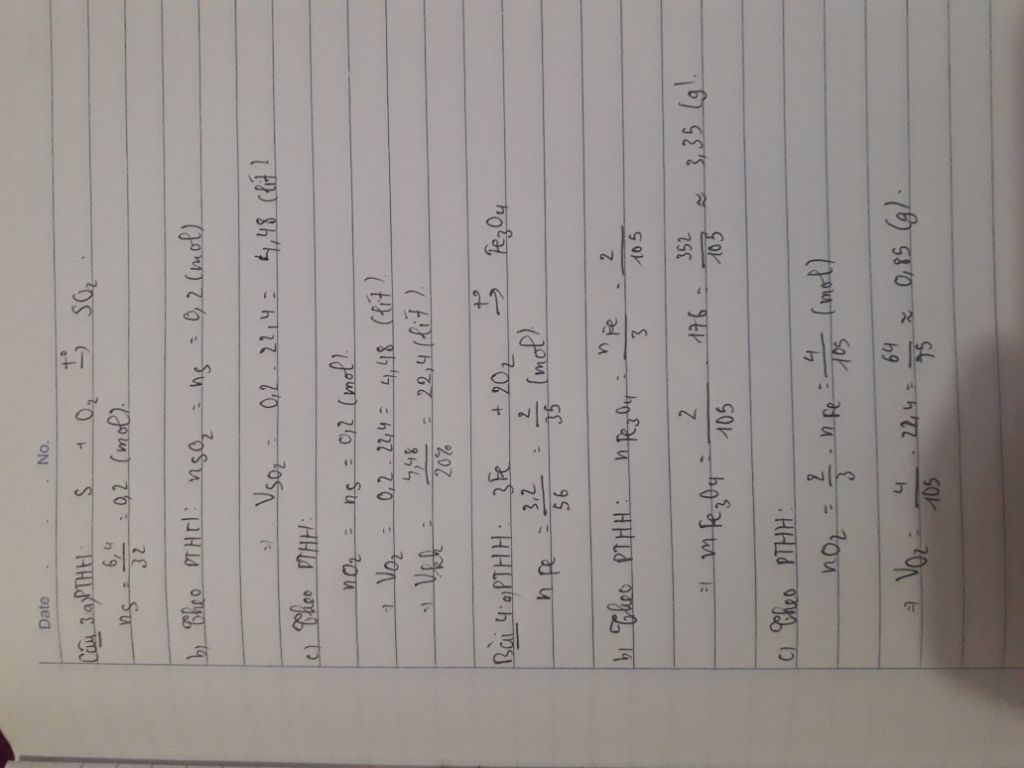 Date . . . No.
Câu 3. a, PTHH: S + O₂ →(t°) SO₂.
nS = 6,4/32 = 0,2 (mol).
b, Theo PTHH: nSO₂ = nS = 0,2 (mol)
⇒ VSO₂ = 0,2 . 22,4 = 4,48 (lít)
c) Theo PTHH:
nO₂ = nS = 0,2 (mol).
⇒ VO₂ = 0,2 . 22,4 = 4,48 (lít).
⇒ Vkk = 4,48/20% = 22,4 (lít).
Bài 4: a, PTHH: 3Fe + 2O₂ →(t°) Fe₃O₄
nFe = 3,2/56 = 2/35 (mol).
b, Theo PTHH: nFe₃O₄ = nFe/3 = 2/105
⇒ mFe₃O₄ = 2/105 . 176 = 352/105 ≈ 3,35 (g).
c) Theo PTHH:
nO₂ = 2/3 . nFe = 4/105 (mol)
⇒ VO₂ = 4/105 . 22,4 = 64/75 ≈ 0,85 (g).